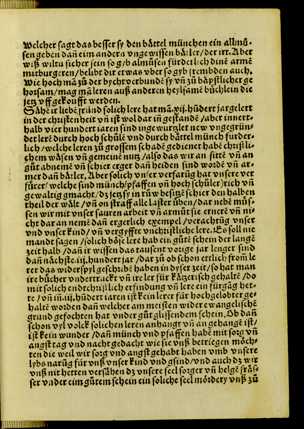 Welcher sagt das besser sy den bättel münchen ein allmů
sen geben dañ eim andern vngewissen bätler/der irt. Aber
wiß wiltu sicher sein so gyb almůsen fürderlich dine armē
mitburgeren/belibt dir etwas vber so gyb frembden auch.
Wie hoch mā zů der bychtverbunde sy vñ zů bäpstlicher ge
horsam/mag mā leren auß anderen heylsamē büchlin die
jetz vff gekoufft werden.
Sähe ir liebē fründ solich lere hat mā
in der christenheit vñ ist woldar in gestandē/aber innert
halb vier hundert jaren sind ungewurlet new vngegrün
det lere durch hoch schůlē vnd durch bättel münch fürder
lich/welche leren zů grossem schadē gedienet habē christli
chem wäsen vñ gemeine nutz/also das wir an sittē vñ an
gůt abnemē vñ sicher erger dañ heiden sind wordē vñ ar
mer dan bätler. Aber solich vnser verfürūg hat vnsere ver
fürer/welche sind münch/pfaffen vñ hoch schůler/rich vñ
gewaltig gemacht/dz jetz sy in rüw besitzē schier den halben
theil der wält/vñ on straff alle laster üben/dar nebē můs
sen wir mit vnser sauren arbeit vñ armůt sie ernerē vñ ni
cht dar an nemē dañ ergerlich exempel/verachtūg vnser
vnd vnser kind/vñ vergyffte vnchristliche lere. Es soll nie
mandt sagen/solich böse lere hat ein gůtē schein der langē
zeit halb/dañ ir wissen das tausent vortge jar lenger sind
dañ nächste.iiij.hundert jar/dar zů ob schon ertlich from lē
rer das widerspyl geschribē haben in dyser zeit/so hat man
ire bücher vndertruckt vñ ire ler für kätzerisch gehaltē/do
mit solich endtchristlich erfindung vñ lere ein fürgāg het
te/vñ in.iiij.hūdert jaren ist kein lerer für hochgelobter ge
haltē worden dañ welcher am meisten wider ewangelischē
grund gefochten hat vnder gůt glissendem schein. Ob dañ
schon vyl volck solichen leren anhangt vñ an gehangē ist/
ist kein wunder/dañ münch vnd pfaffen habē mit sorg vñ
angst tag vnd nacht gedacht wie sie vnß betriegen möch
ten die weil wir sorg vnd angst gehabt haben vmb vnsere
lybs narūg für vnß vnser kind vnd gsind/vnd auch dz wir
vnß nit hetten versähen dz vnsere seel sorger vñ helge
ser vnder eim gůtem schein ein soliche seel mördery vnß zů